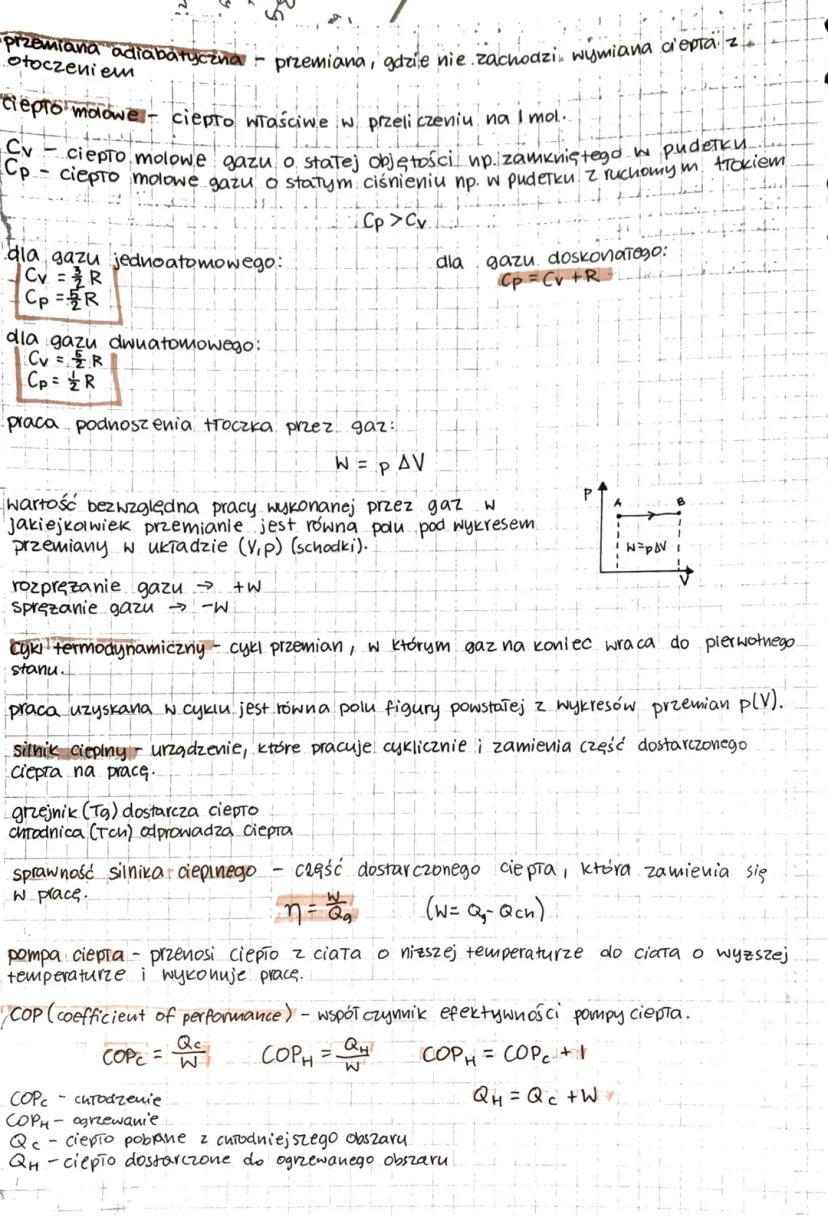 przemiana adiabatyczna - przemiana, gdzie nie zachodzi wymiana ciepła z
otoczeniem
ciepło molowe - ciepło właściwe w przeliczeniu na 1 mol.
Cv - ciepło molowe gazu o stałej objętości np. zamkniętego w pudełku
Cp - ciepło molowe gazu o stałym ciśnieniu np. w pudełku z ruchomym tłokiem
Cp > Cv
dla gazu jednoatomowego:
Cv = 3/2 R
Cp = 5/2 R
dla gazu doskonałego:
Cp = Cv + R
dla gazu dwuatomowego:
Cv = 5/2 R
Cp = 1/2 R
praca podnoszenia tłoczka przez gaz:
W = p ΔV
wartość bezwzględna pracy wykonanej przez gaz w
jakiejkolwiek przemianie jest równa polu pod wykresem
przemiany w układzie (V,p) (schodki).
P
A
B
W=pΔV
V
rozprężanie gazu → +W
sprężanie gazu → -W
cykl termodynamiczny - cykl przemian, w którym gaz na koniec wraca do pierwotnego
stanu.
praca uzyskana w cyklu jest równa polu figury powstałej z wykresów przemian p(V).
silnik cieplny - urządzenie, które pracuje cyklicznie i zamienia część dostarczonego
ciepła na pracę.
grzejnik (Tg) dostarcza ciepło
chłodnica (Tch) odprowadza ciepła
sprawność silnika cieplnego - część dostarczonego ciepła, która zamienia się
w pracę.
η = W/Qg (W= Qg - Qch)
pompa ciepła - przenosi ciepło z ciała o niższej temperaturze do ciała o wyższej
temperaturze i wykonuje pracę.
COP (coefficient of performance) - współczynnik efektywności pompy ciepła.
COPc = Qc/W COPH = QH/W COPH = COPc + 1
QH = Qc + W
COPc - chłodzenie
COPH - ogrzewanie
Qc - ciepło pobrane z chłodniejszego obszaru
QH - ciepło dostarczone do ogrzewanego obszaru